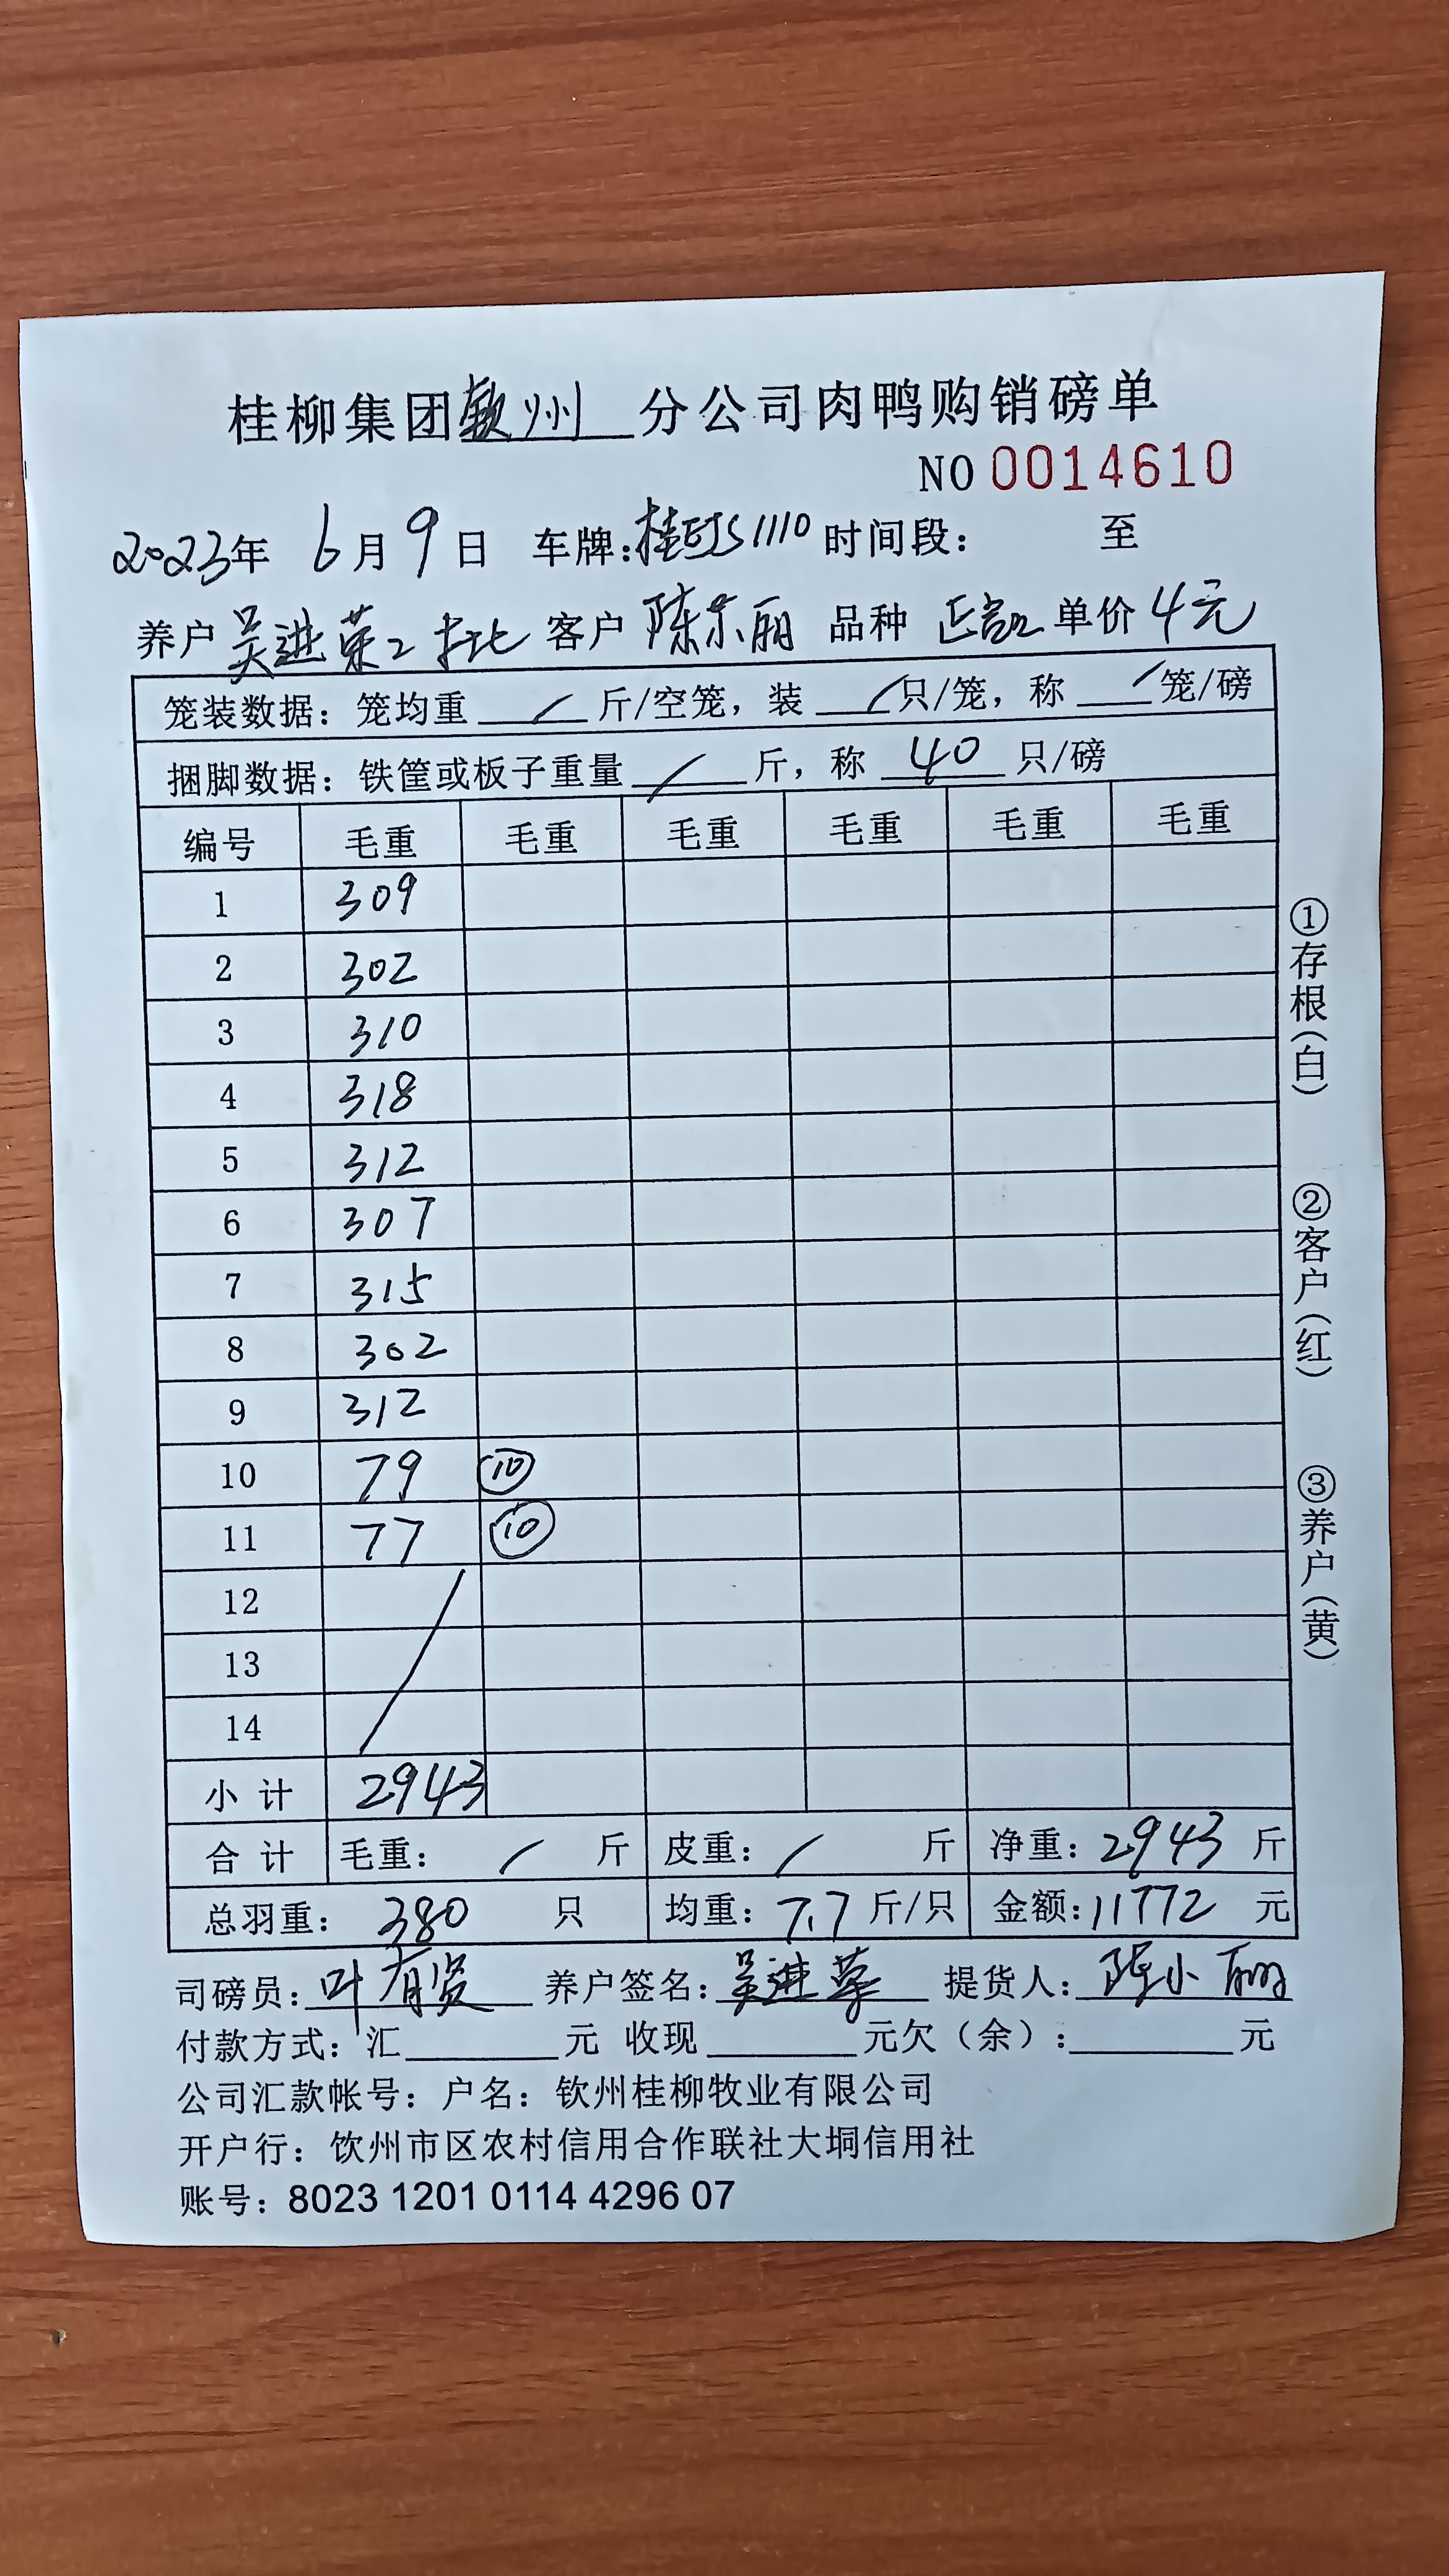 桂柳集团钦州分公司肉鸭购销磅单
NO 0014610
2023年 6月9日 车牌:桂 1110 时间段: 至
养户 吴进荣二批 客户 陈小丽 品种 单价 4元
笼装数据: 笼均重 / 斤/空笼, 装 / 只/笼, 称 / 笼/磅
捆脚数据: 铁筐或板子重量 / 斤, 称 40 只/磅
编号 毛重 毛重 毛重 毛重 毛重 毛重
1 309
2 302
3 310
4 318
5 312
6 307
7 315
8 302
9 312
10 79 ⑩
11 77 ⑩
12
13
14
小 计 2943
合 计 毛重: / 斤 皮重: / 斤 净重: 2943 斤
总羽重: 380 只 均重: 7.7 斤/只 金额: 11772 元
司磅员: 叶有贤 养户签名: 吴进荣 提货人: 陈小丽
付款方式: 汇 元 收现 元欠(余): 元
公司汇款帐号: 户名: 钦州桂柳牧业有限公司
开户行: 钦州市区农村信用合作联社大垌信用社
账号: 8023 1201 0114 4296 07
①存根(白)
②客户(红)
③养户(黄)